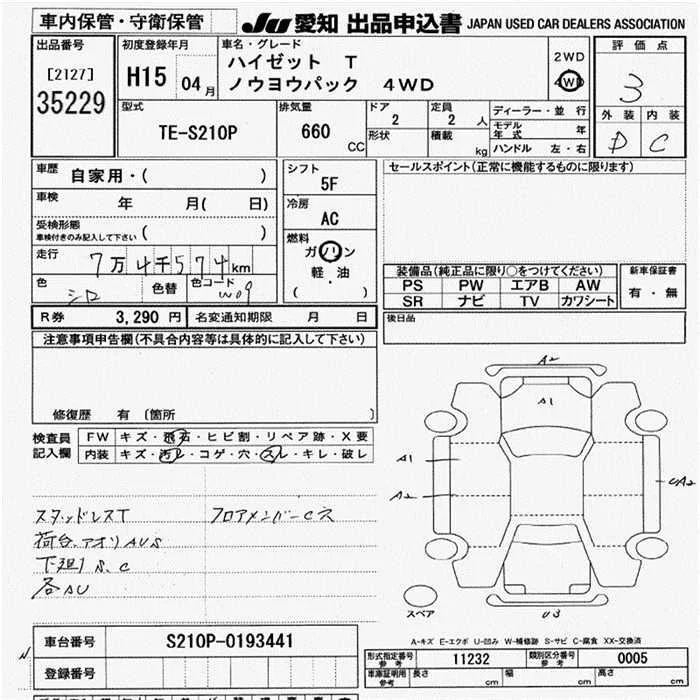 車内保管・守衛保管
JU 愛知 出品申込書 JAPAN USED CAR DEALERS ASSOCIATION
出品番号
[2127]
35229
初度登録年月
H15 04 月
車名・グレード
ハイゼット T
ノウヨウパック 4WD
2WD
4WD
評価点
3
外装 内装
D C
型式
TE-S210P
排気量
660 CC
ドア
2
形状
定員
2 人
積載 kg
ディーラー・並 行
モデル年式 年
ハンドル 左・右
車歴
自家用・( )
車検 年 月( 日)
受検形態
車検付きのみ記入して下さい ( )
走行 7万4千574km
色 シロ 色替 色コード W09
シフト
5F
冷房
AC
燃料
ガソリン
軽・油
( ・ )
セールスポイント(正常に機能するものに限ります)
装備品(純正品に限り○をつけてください)
PS PW エアB AW
SR ナビ TV カワシート
新車保証書
有・無
後日品
R券 3,290 円 名変通知期限 月 日
注意事項申告欄(不具合内容等は具体的に記入して下さい)
修復歴 有 〔箇所 〕
検査員
記入欄
FW キズ・飛石・ヒビ割・リペア跡・X要
内装 キズ・汚レ・コゲ・穴・スレ・キレ・破レ
スタッドレスT
フロアメンバーCス
荷台、アオリAUS
下廻りS.C
各AU
A2
A1
A1
A2
UA2
U3
スペア
A-キズ E-エクボ U-凹み W-補修跡 S-サビ C-腐食 XX-交換済
車台番号 S210P-0193441
登録番号
形式指定番号
参考
11232
類別区分番号
参考
0005
車庫証明用
参考
長さ cm 幅 cm 高さ cm